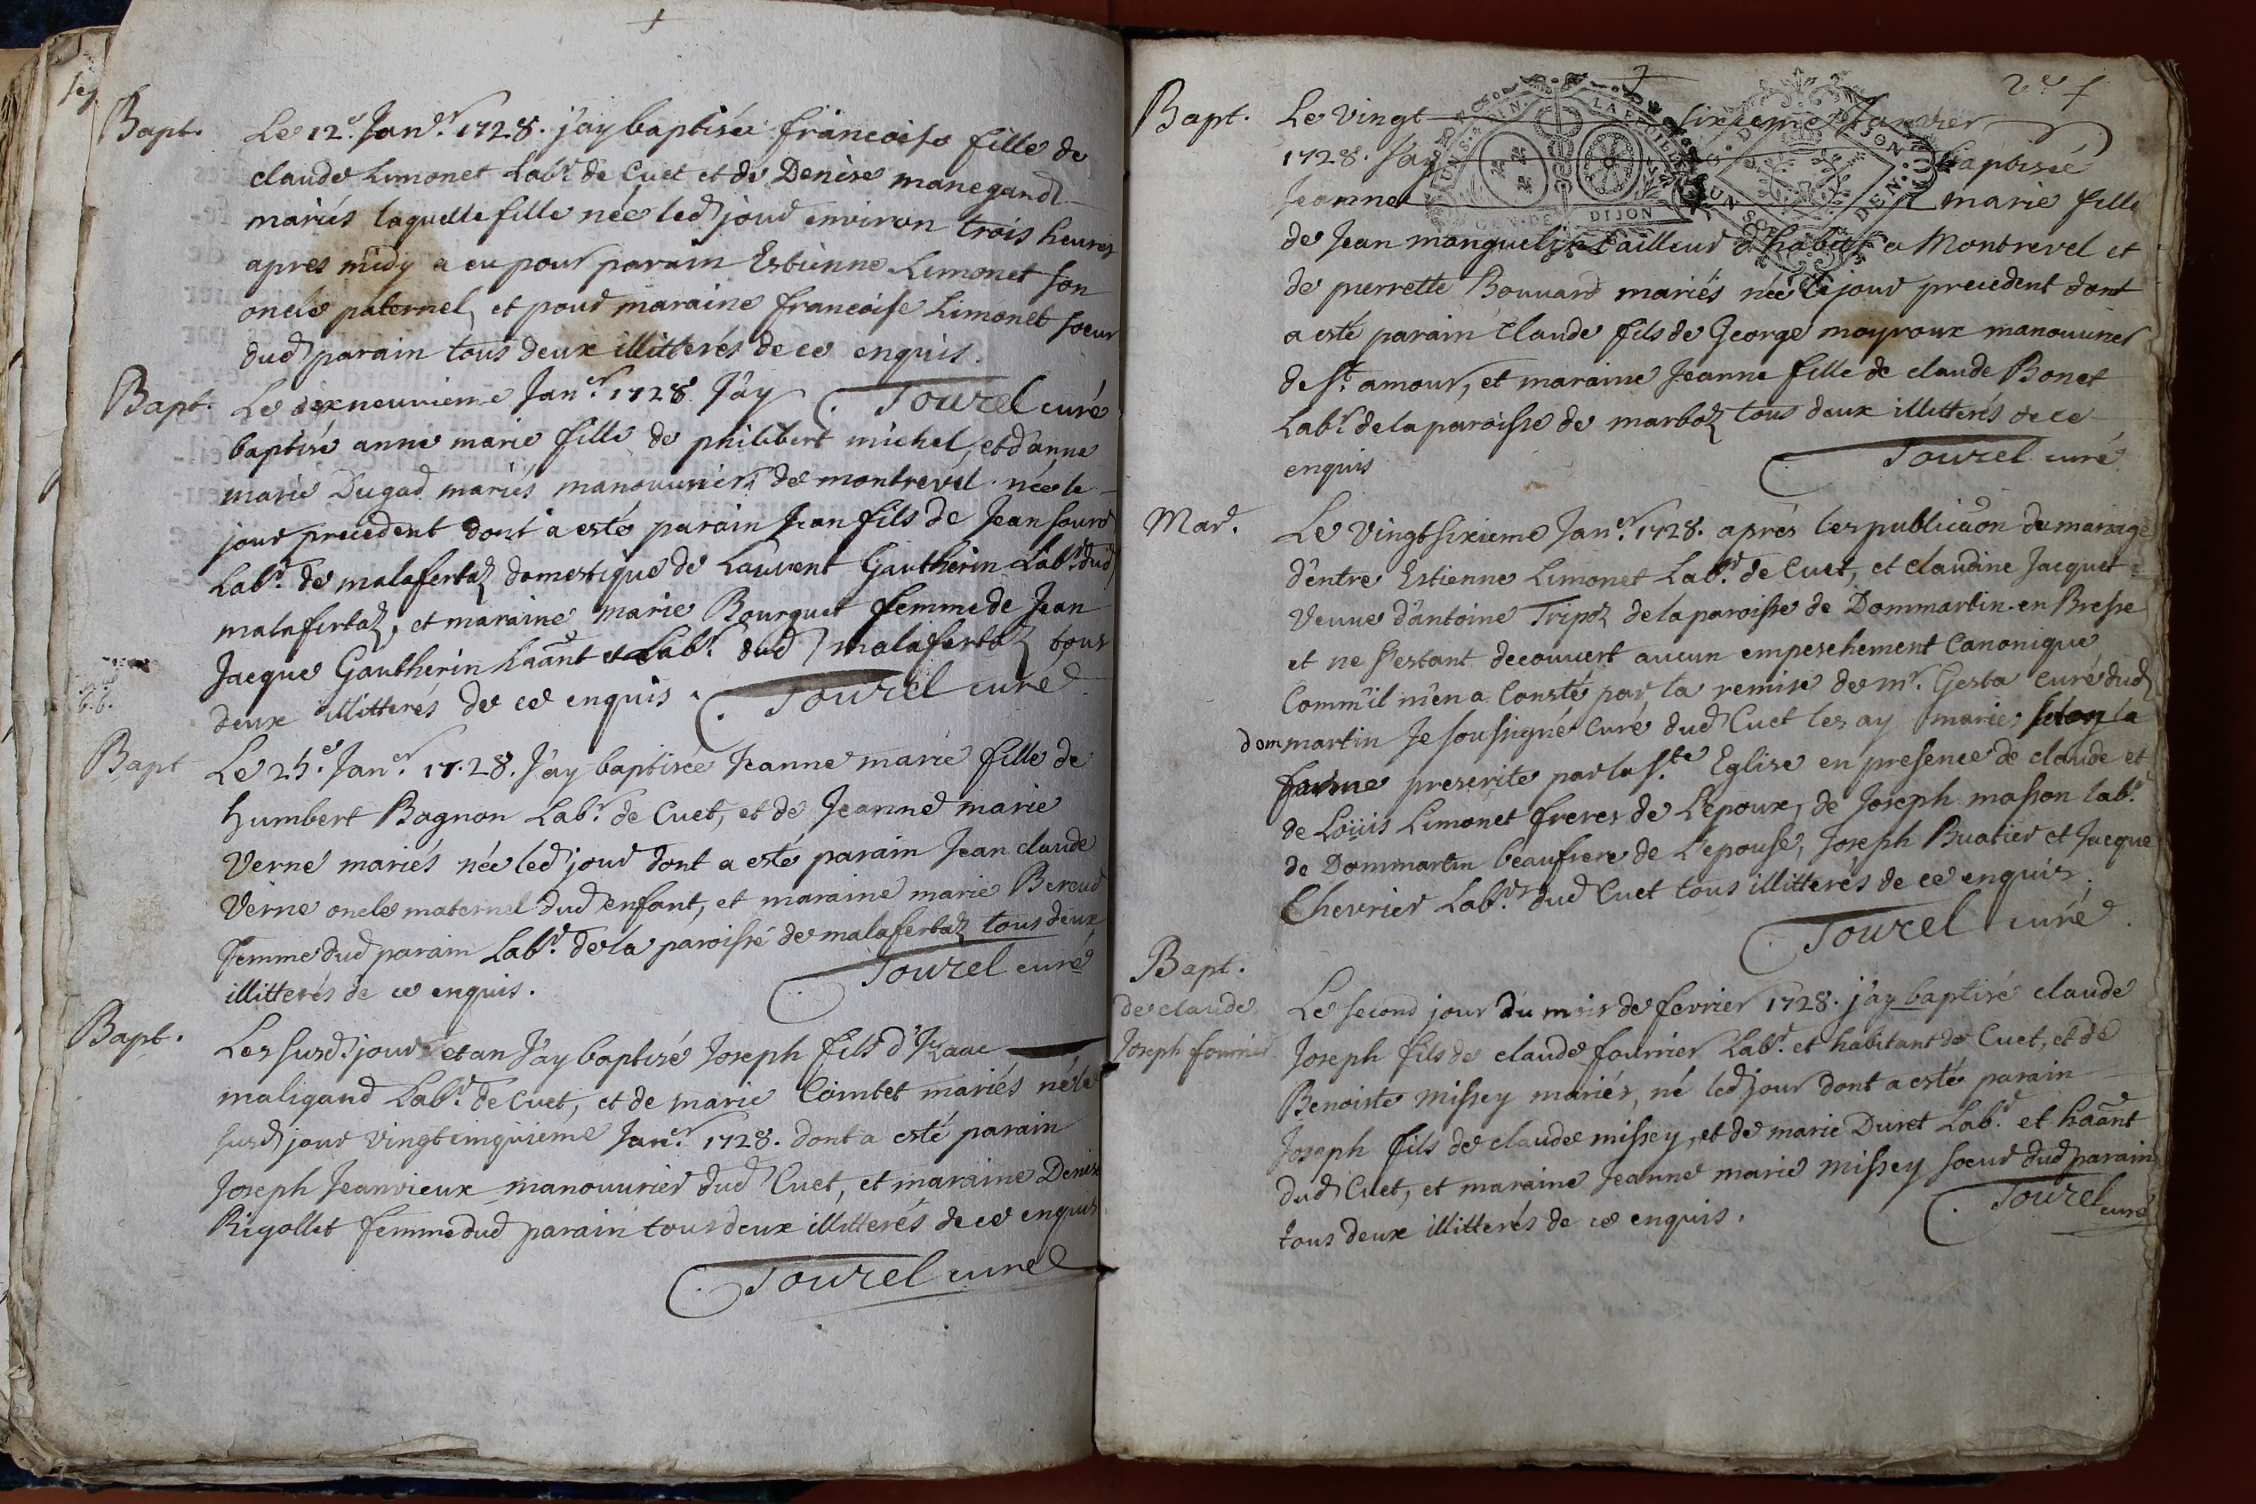 Bapt. Le 12e. Janer. 1728. j'ay baptisée francoise fille de
claude Limonet Labr. de Cuet et de Denise manegand
mariés laquelle fille née led jour environ trois heures
apres midy a eu pour parain Estienne Limonet son
oncle paternel, et pour maraine francoise Limonet soeur
dud parain tous deux illitterés de ce enquis.
Tourel curé
Bapt. Le dixneuvieme Janer. 1728 J'ay
baptisé anne marie fille de philibert michel, et d'anne
marie Dugad mariés manouvriers de montrevel née le
jour precedent dont a esté parain Jean fils de Jean sourd
Labr. de malafertaz domestique de Laurent Gautherin Labr. dud
malafertaz, et maraine marie Bourquet femme de Jean
Jacque Gautherin haant et Labr. dud malafertaz tous
deux illitterés de ce enquis. Tourel curé
Bapt Le 25e. Janer. 1728. J'ay baptisée Jeanne marie fille de
humbert Bagnon Labr. de Cuet, et de Jeanne marie
Verne mariés née led jour dont a esté parain Jean claude
Verne oncle maternel dud enfant, et maraine marie Bereud
femme dud parain Labr. de la paroisse de malafertaz tous deux
illitterés de ce enquis. Tourel curé
Bapt. Les susd. jour et an J'ay baptisé Joseph fils d'Isaac
maligand Labr. de Cuet, et de marie Comtet mariés né le
susd jour vingt cinquieme Janer. 1728. dont a esté parain
Joseph Jeanvieux manouvrier dud Cuet, et maraine Denise
Rigollet femme dud parain tous deux illitterés de ce enquis
Tourel curé
2e
Bapt. Le vingt sixieme Janvier
1728. J'ay baptisée
Jeanne marie fille
de Jean manguelin tailleur d'habits a Montrevel et
de pierrette Bouvard mariés née le jour precedent dont
a esté parain Claude fils de George moyroux manouvrier
de St. amour, et maraine Jeanne fille de claude Bonet
Labr. de la paroisse de marboz tous deux illitterés de ce
enquis Tourel curé
Mare. Le vingt sixieme Janer. 1728. aprés les publicaon de mariage
d'entre Estienne Limonet Labr. de Cuet, et claudine Jacquet
Veuve d'antoine Tripoz de la paroisse de Dommartin en Bresse
et ne s'estant decouvert aucun empeschement Canonique
Comm'il m'en a Consté par la remise de mr. Gesta curé dud
dommartin Je soussigné Curé dud Cuet les ay mariés selon la
forme prescrite par la Ste Eglise en presence de claude et
de Loüis Limonet freres de L'epoux, de Joseph masson labr.
de Dommartin beaufrere de L'epouse, Joseph Buatier et Jacque
Chevrier Labrs. dud Cuet tous illitterés de ce enquis.
Tourel curé
Bapt.
de claude
Joseph fournier
Le second jour du mois de fevrier 1728. j'ay baptisé claude
Joseph fils de claude fournier Labr. et habitant de Cuet, et de
Benoiste missey mariés, né led jour dont a esté parain
Joseph fils de claude missey, et de marie Duret Labr. et haant
dud Cuet, et maraine Jeanne marie missey soeur dud parain
tous deux illitterés de ce enquis. Tourel curé